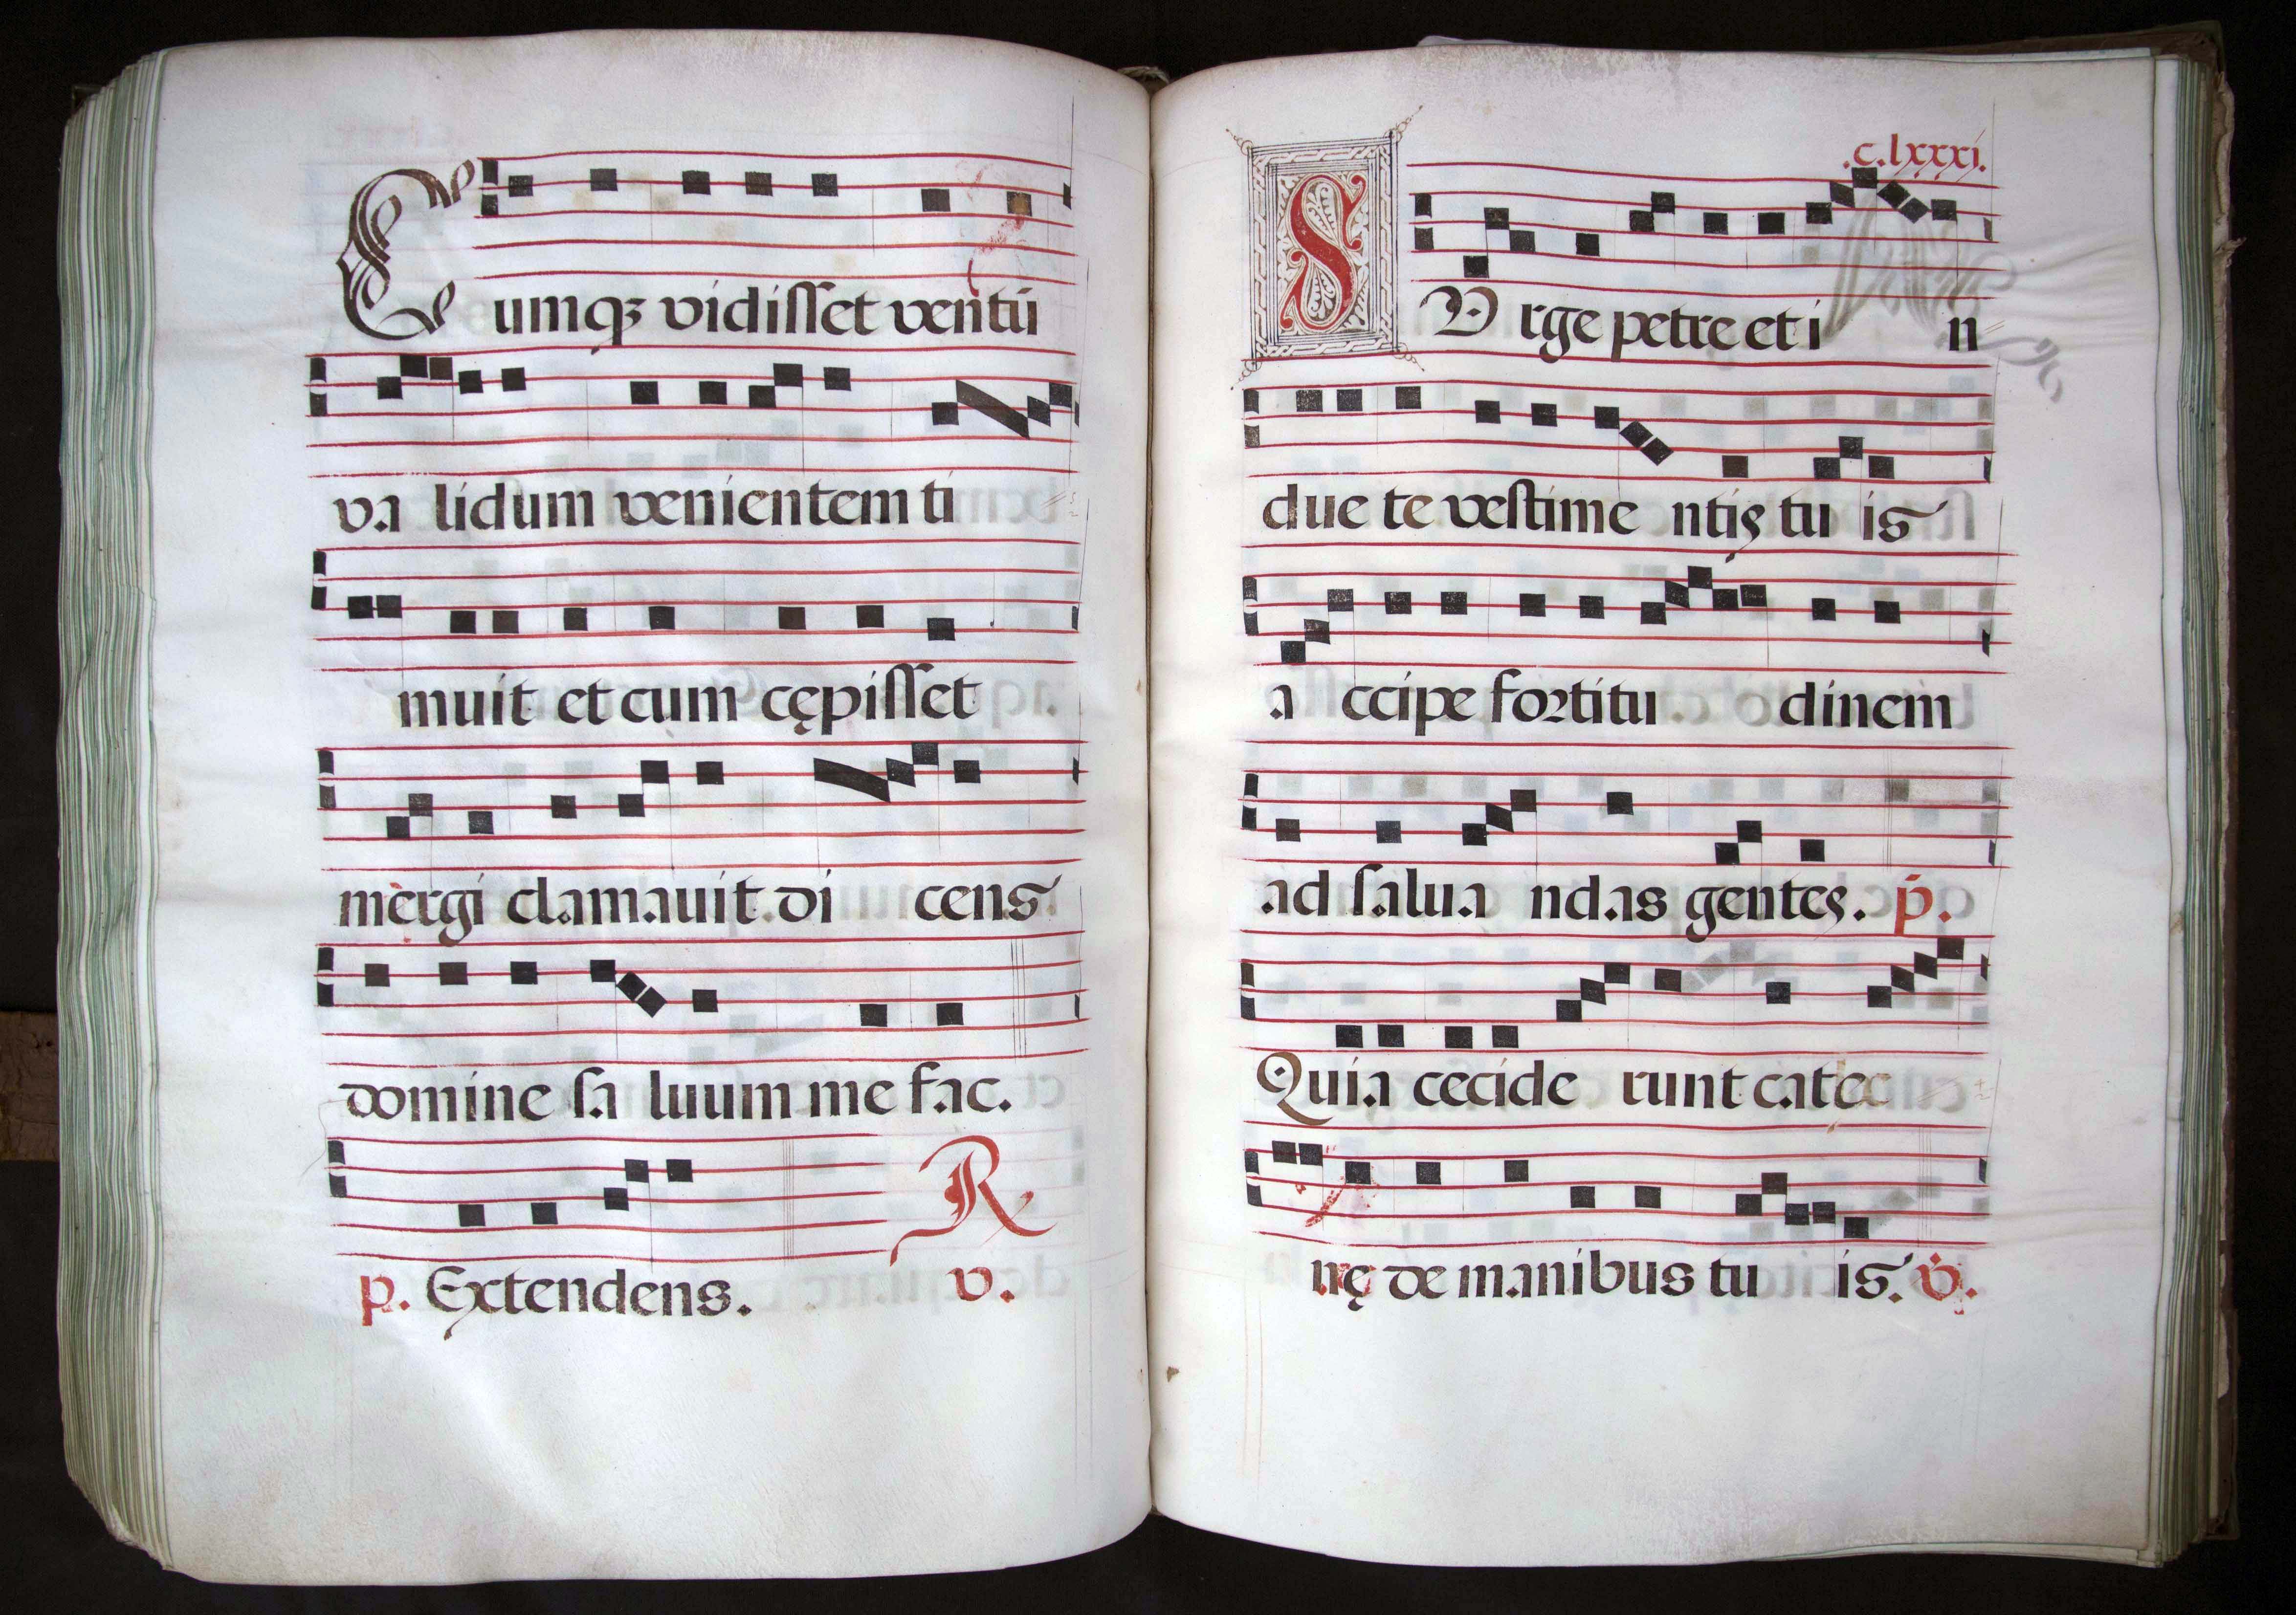 Cumqꝫ vidisset ventū
va lidum venientem ti
muit et cum cępisset
mergi clamauit di cens
domine sa luum me fac.
p. Extendens. R v.
.c.lxxxi.
SUrge petre et i n
due te vestime ntis tu is
a ccipe fortitu dinem
ad salua ndas gentes. p.
Quia cecide runt catec
nę de manibus tu is. v.